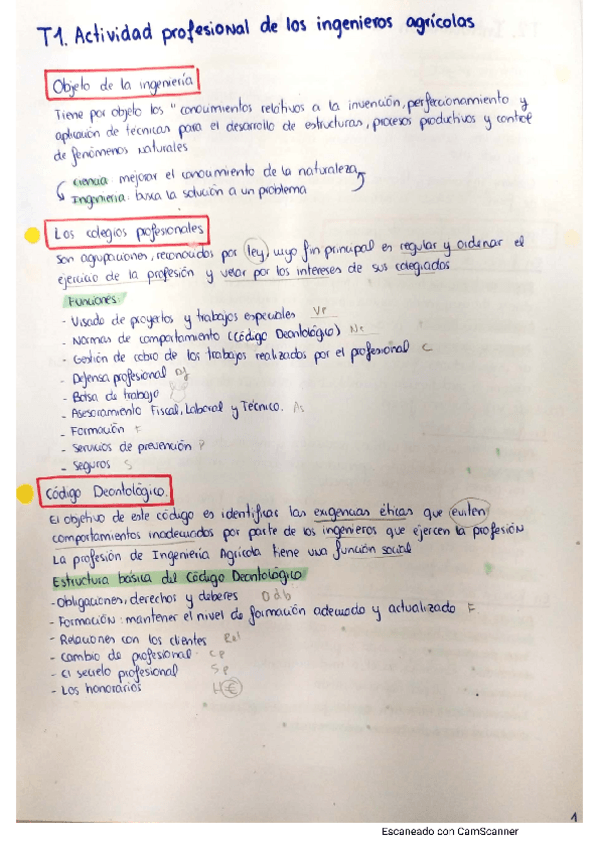 T1. Actividad profesional de los ingenieros agrícolas
Objeto de la ingeniería
Tiene por objeto los "conocimientos relativos a la invención, perfeccionamiento y
aplicación de técnicas para el desarrollo de estructuras, procesos productivos y control
de fenómenos naturales
Ciencia: mejorar el conocimiento de la naturaleza
Ingeniería: busca la solución a un problema
Los colegios profesionales
son agrupaciones, reconocidos por ley, cuyo fin principal es regular y ordenar el
ejercicio de la profesión y velar por los intereses de sus colegiados
Funciones:
- Visado de proyectos y trabajos especiales Vp
- Normas de comportamiento (Código Deontológico) Nc
- Gestión de cobro de los trabajos realizados por el profesional C
- Defensa profesional
- Bolsa de trabajo
- Asesoramiento Fiscal, Laboral y Técnico. As
- Formación F
- Servicios de prevención P
- Seguros S
Código Deontológico.
El objetivo de este código es identificar las exigencias éticas que eviten
comportamientos inadecuados por parte de los ingenieros que ejercen la profesión
La profesión de Ingeniería Agrícola tiene una función social
Estructura básica del Código Deontológico
- Obligaciones, derechos y deberes Odb
- Formación: mantener el nivel de formación adecuado y actualizado F
- Relaciones con los clientes Rel
- Cambio de profesional. Cp
- El secreto profesional Sp
- Los honorarios H€
1
Escaneado con CamScanner